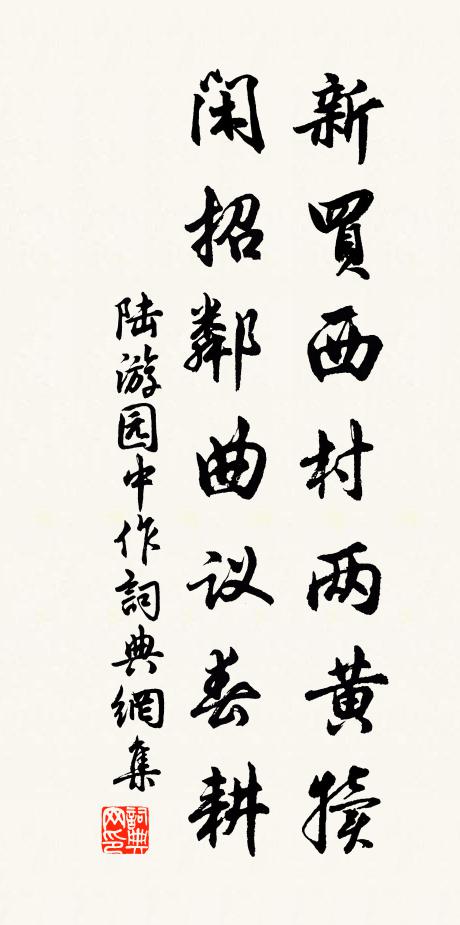 新買西村两黄犢
闲招鄰曲议春耕
陆游园中作詞典網集
詞典网印